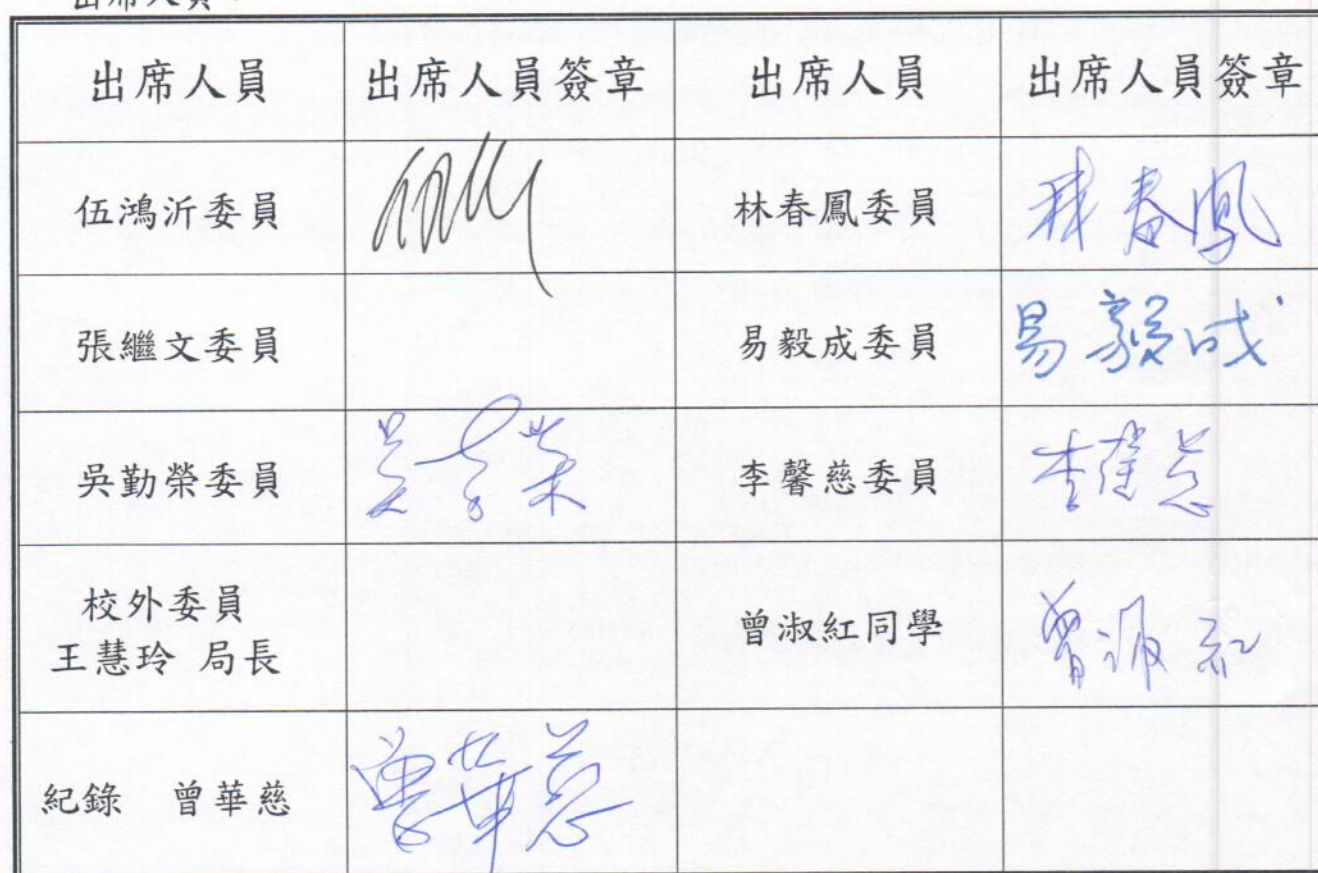 出席人員：
出席人員 出席人員簽章 出席人員 出席人員簽章
伍鴻沂委員 林春鳳委員 林春鳳
張繼文委員 易毅成委員 易毅成
吳勤榮委員 吳勤榮 李馨慈委員 李馨慈
校外委員
王慧玲 局長 曾淑紅同學 曾淑紅
紀錄 曾華慈 曾華慈